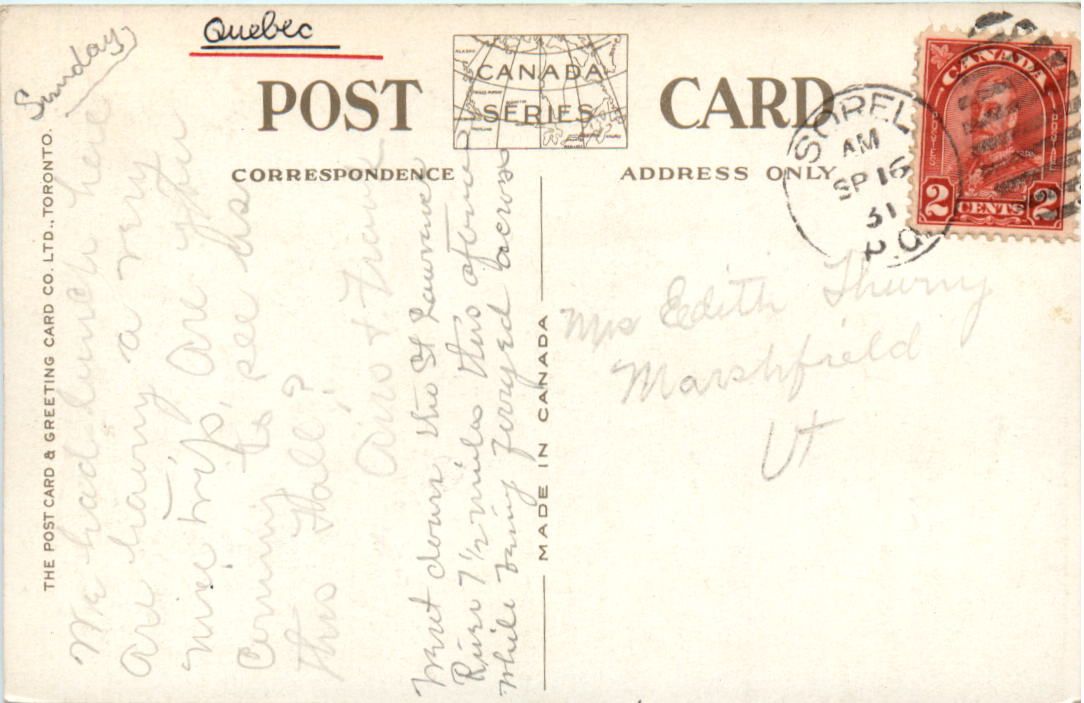 Quebec
Sunday
POST CARD
CANADA
SERIES
CORRESPONDENCE
ADDRESS ONLY
SOREL
AM
SP 16
31
P.Q.
CANADA
POSTES
POSTAGE
2 CENTS 2
THE POST CARD & GREETING CARD CO. LTD., TORONTO.
We had lunch here
are having a very
nice trip, are you
coming to see us
this Fall?
& Frank
Went down the St Lawrence
River 7 1/2 miles this afternoon
while being ferryed across
MADE IN CANADA
Mrs Edith
Marshfield
Vt